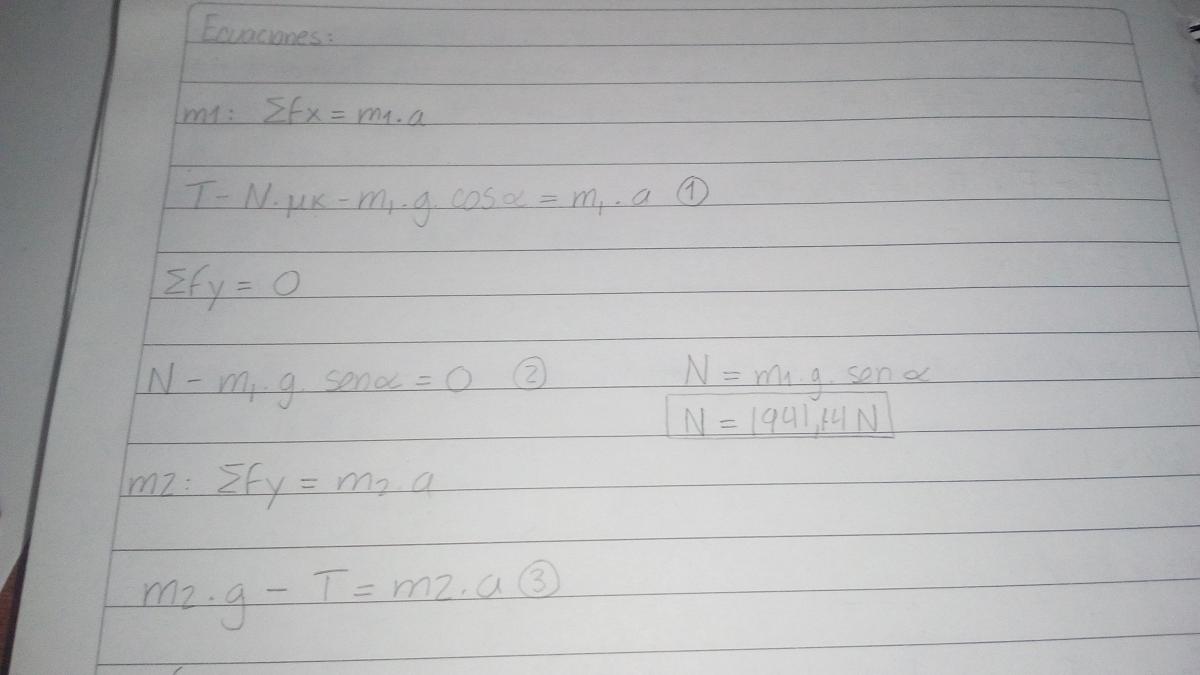 Ecuaciones:
m1: Σfx = m1.a
T - N.μk - m1.g. cosα = m1.a ①
Σfy = 0
N - m1.g. senα = 0 ② N = m1.g. senα
N = 1941,14N
m2: Σfy = m2.a
m2.g - T = m2.a ③